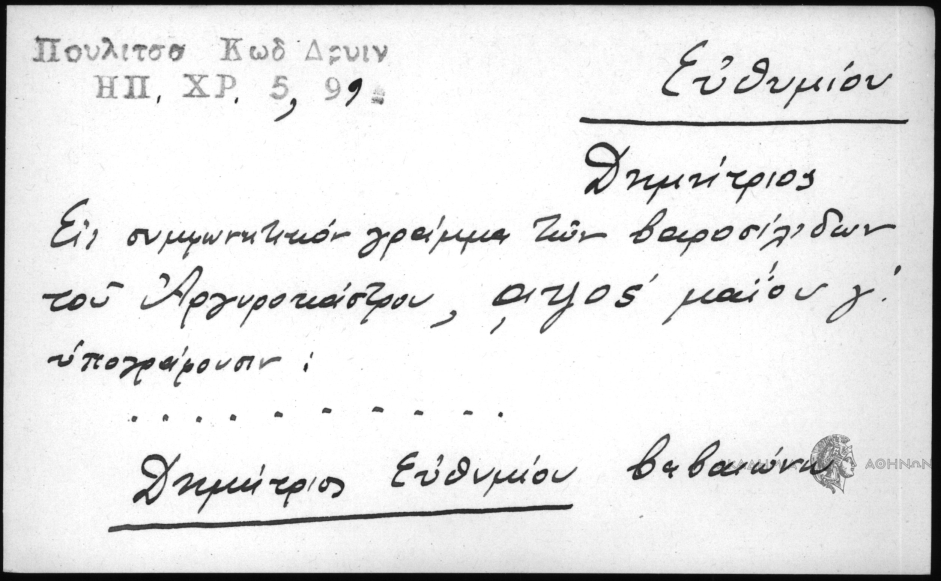 Πουλιτσα Κωδ Δρυιν
ΗΠ. ΧΡ. 5, 99
Εὐθυμίου
Δημήτριος
Εἰς συμφωνητικόν γράμμα τῶν βαροσίλιδων
τοῦ Ἀργυροκάστρου, μαΐου γ΄.
ὑπογράφουσιν :
. . . . . . . . . . .
Δημήτρις Εὐθυμίου βεβαιώνω
ΑΘΗΝΩΝ